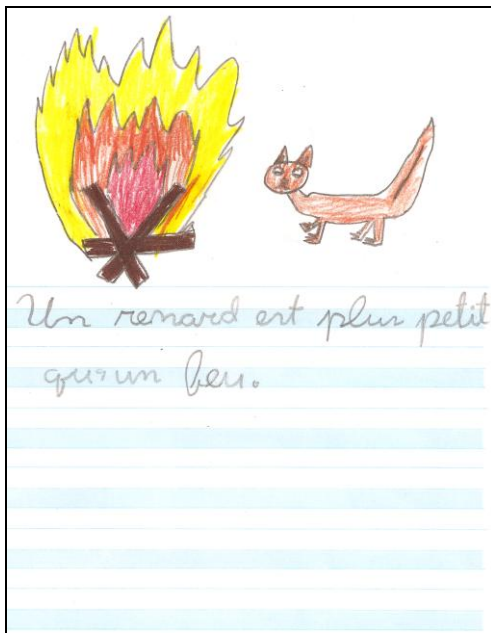 Un renard est plus petit
qu'un feu.